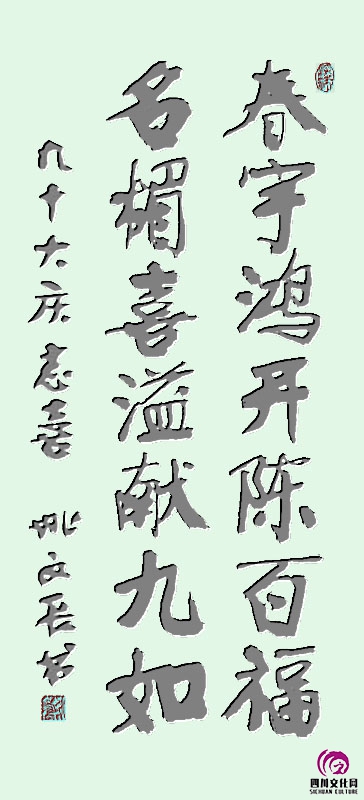 春宇鸿开陈百福
名楣喜溢献九如
八十大庆志喜 姚文长书
四川文化网
SICHUAN CULTURE